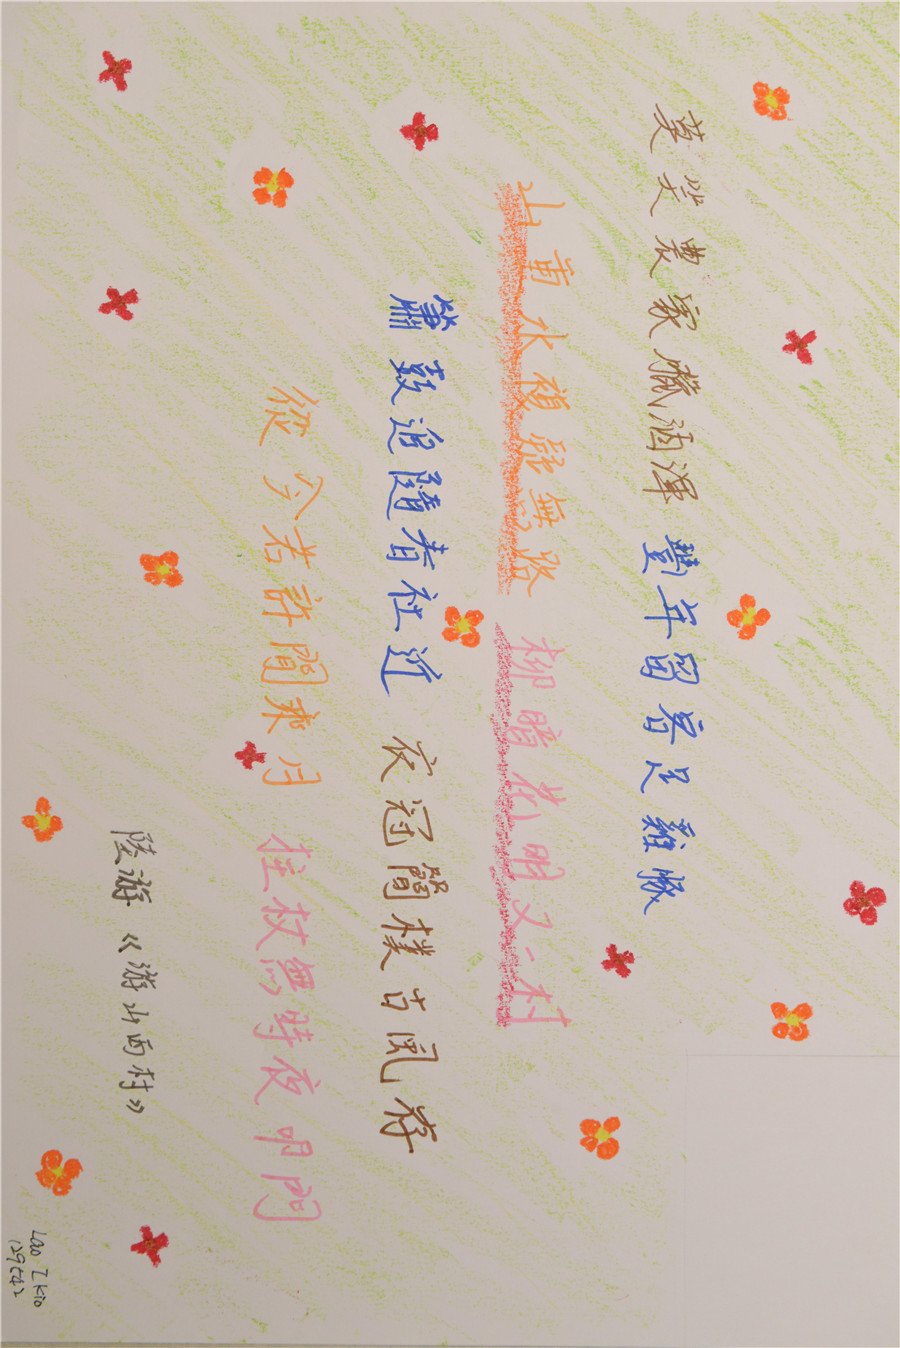 莫笑農家臘酒渾 豐年留客足雞豚
山重水複疑無路 柳暗花明又一村
簫鼓追隨春社近 衣冠簡樸古風存
從今若許閒乘月 拄杖無時夜叩門
陸游《游山西村》
Lao I Kio